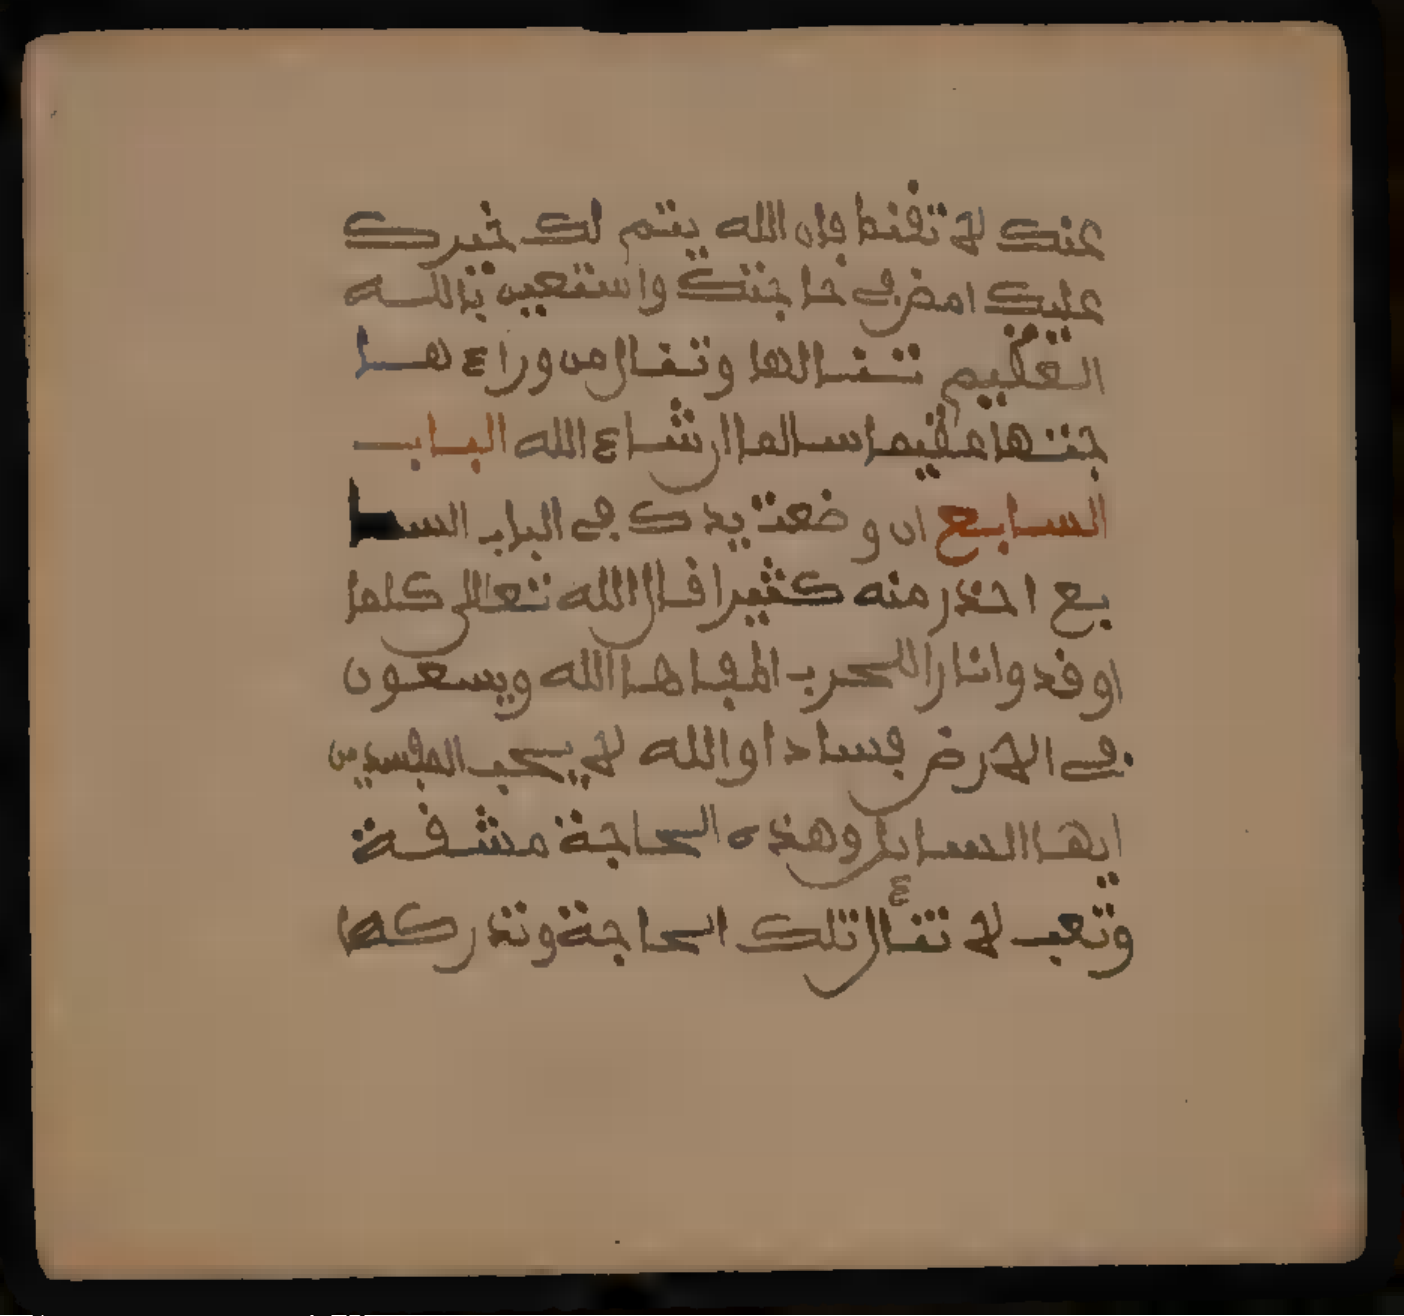 عنك لا تقنط فان الله يتم لك خيرك
عليك امض في حاجتك واستعين بالله
العظيم تنالها وتنال من وراء ها
جتها مقيما سالما ان شاء الله الباب
السابع ان وضعت يدك في الباب السا
بع احذر منه كثيرا قال الله تعالى كلما
اوقدوا نارا للحرب اطفاها الله ويسعون
في الارض فسادا والله لا يحب المفسدين
ايها السايل وهذه الحاجة مشقة
وتعب لا تنال تلك الحاجة وتدركها